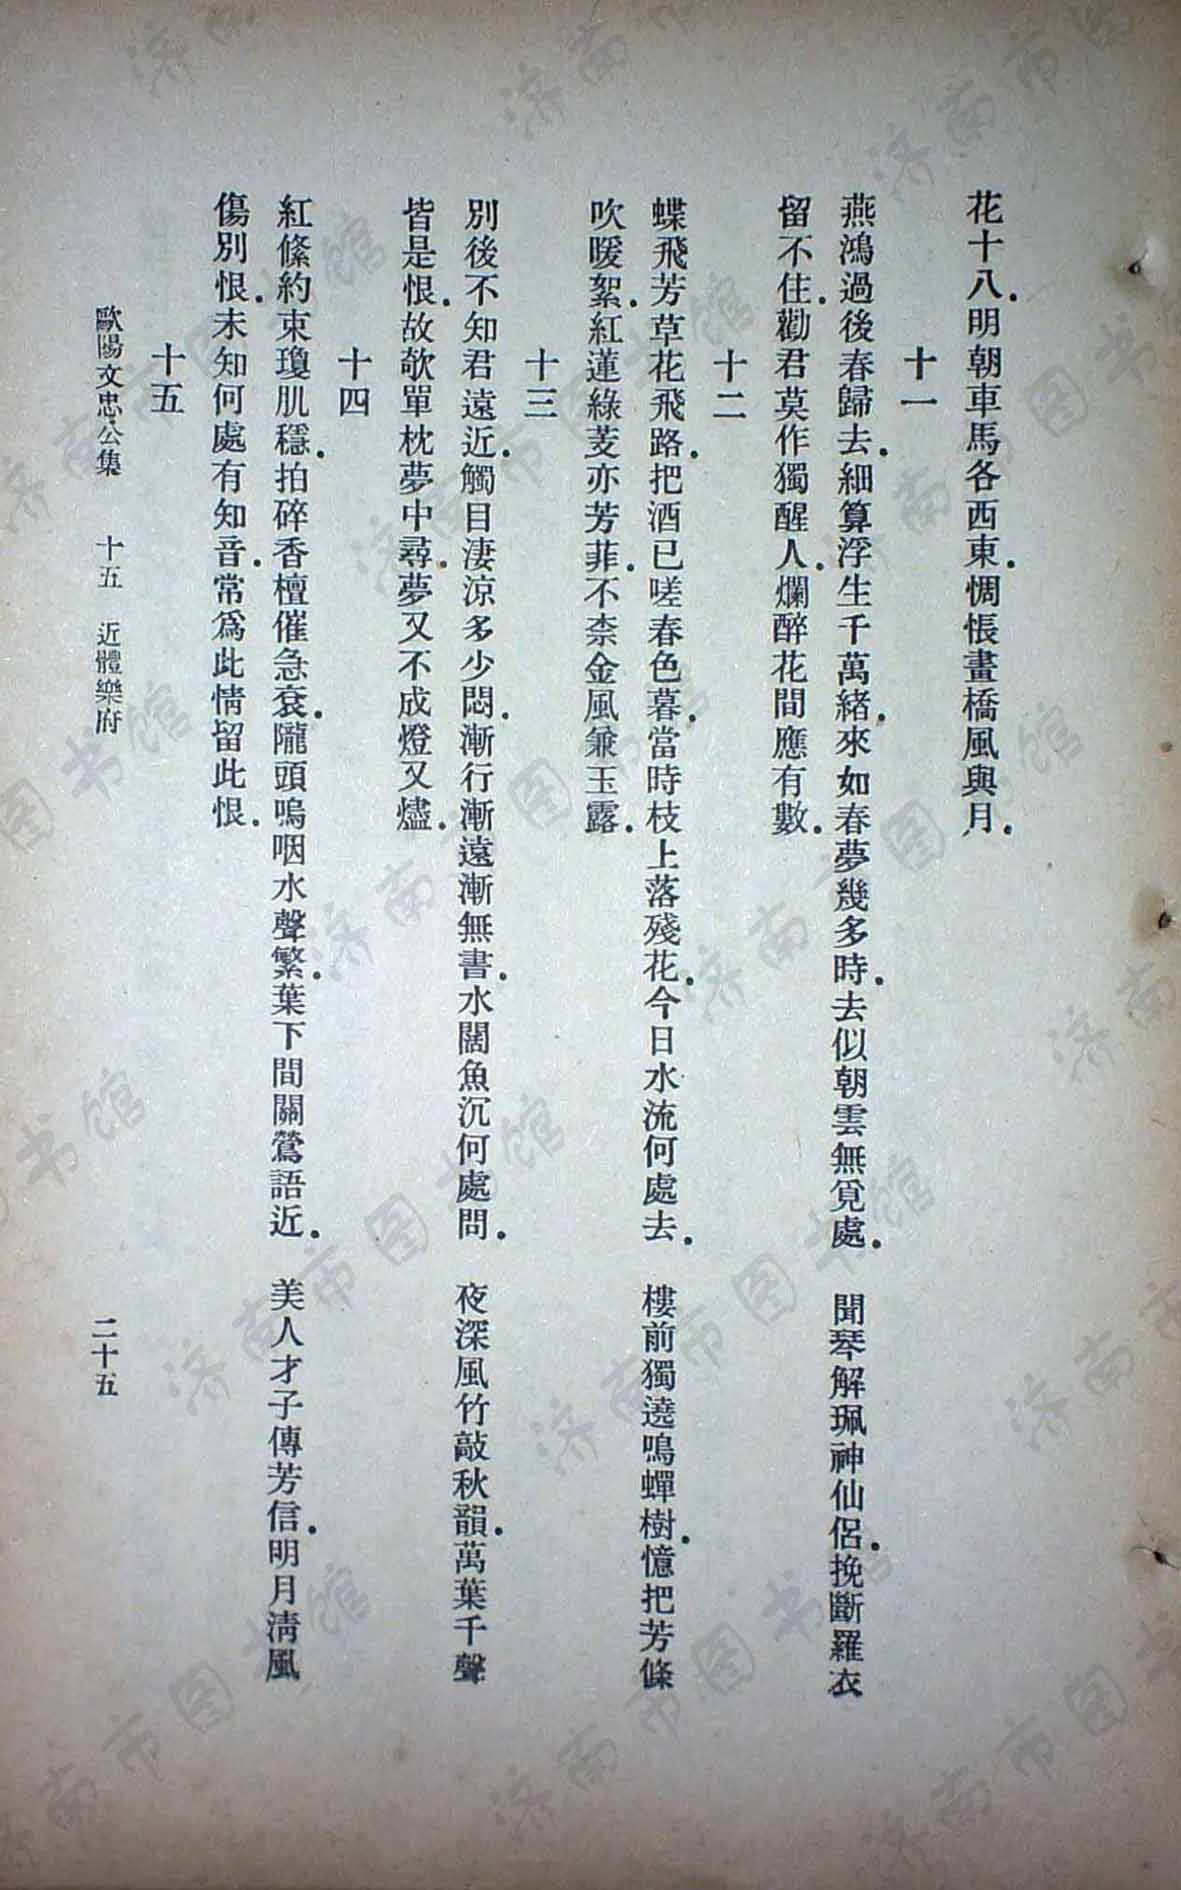 花十八．明朝車馬各西東．惆悵畫橋風與月．
十一
燕鴻過後春歸去．細算浮生千萬緒．來如春夢幾多時．去似朝雲無覓處．　聞琴解珮神仙侶．挽斷羅衣
留不住．勸君莫作獨醒人．爛醉花間應有數．
十二
蝶飛芳草花飛路．把酒已嗟春色暮．當時枝上落殘花．今日水流何處去．　樓前獨遶鳴蟬樹．憶把芳條
吹暖絮．紅蓮綠芰亦芳菲．不柰金風兼玉露．
十三
別後不知君遠近．觸目淒涼多少悶．漸行漸遠漸無書．水闊魚沉何處問．　夜深風竹敲秋韻．萬葉千聲
皆是恨．故欹單枕夢中尋．夢又不成燈又燼．
十四
紅絛約束瓊肌穩．拍碎香檀催急衮．隴頭嗚咽水聲繁．葉下間關鶯語近．　美人才子傳芳信．明月清風
傷別恨．未知何處有知音．常爲此情留此恨．
十五
歐陽文忠公集　十五　近體樂府　二十五
济南市图书馆